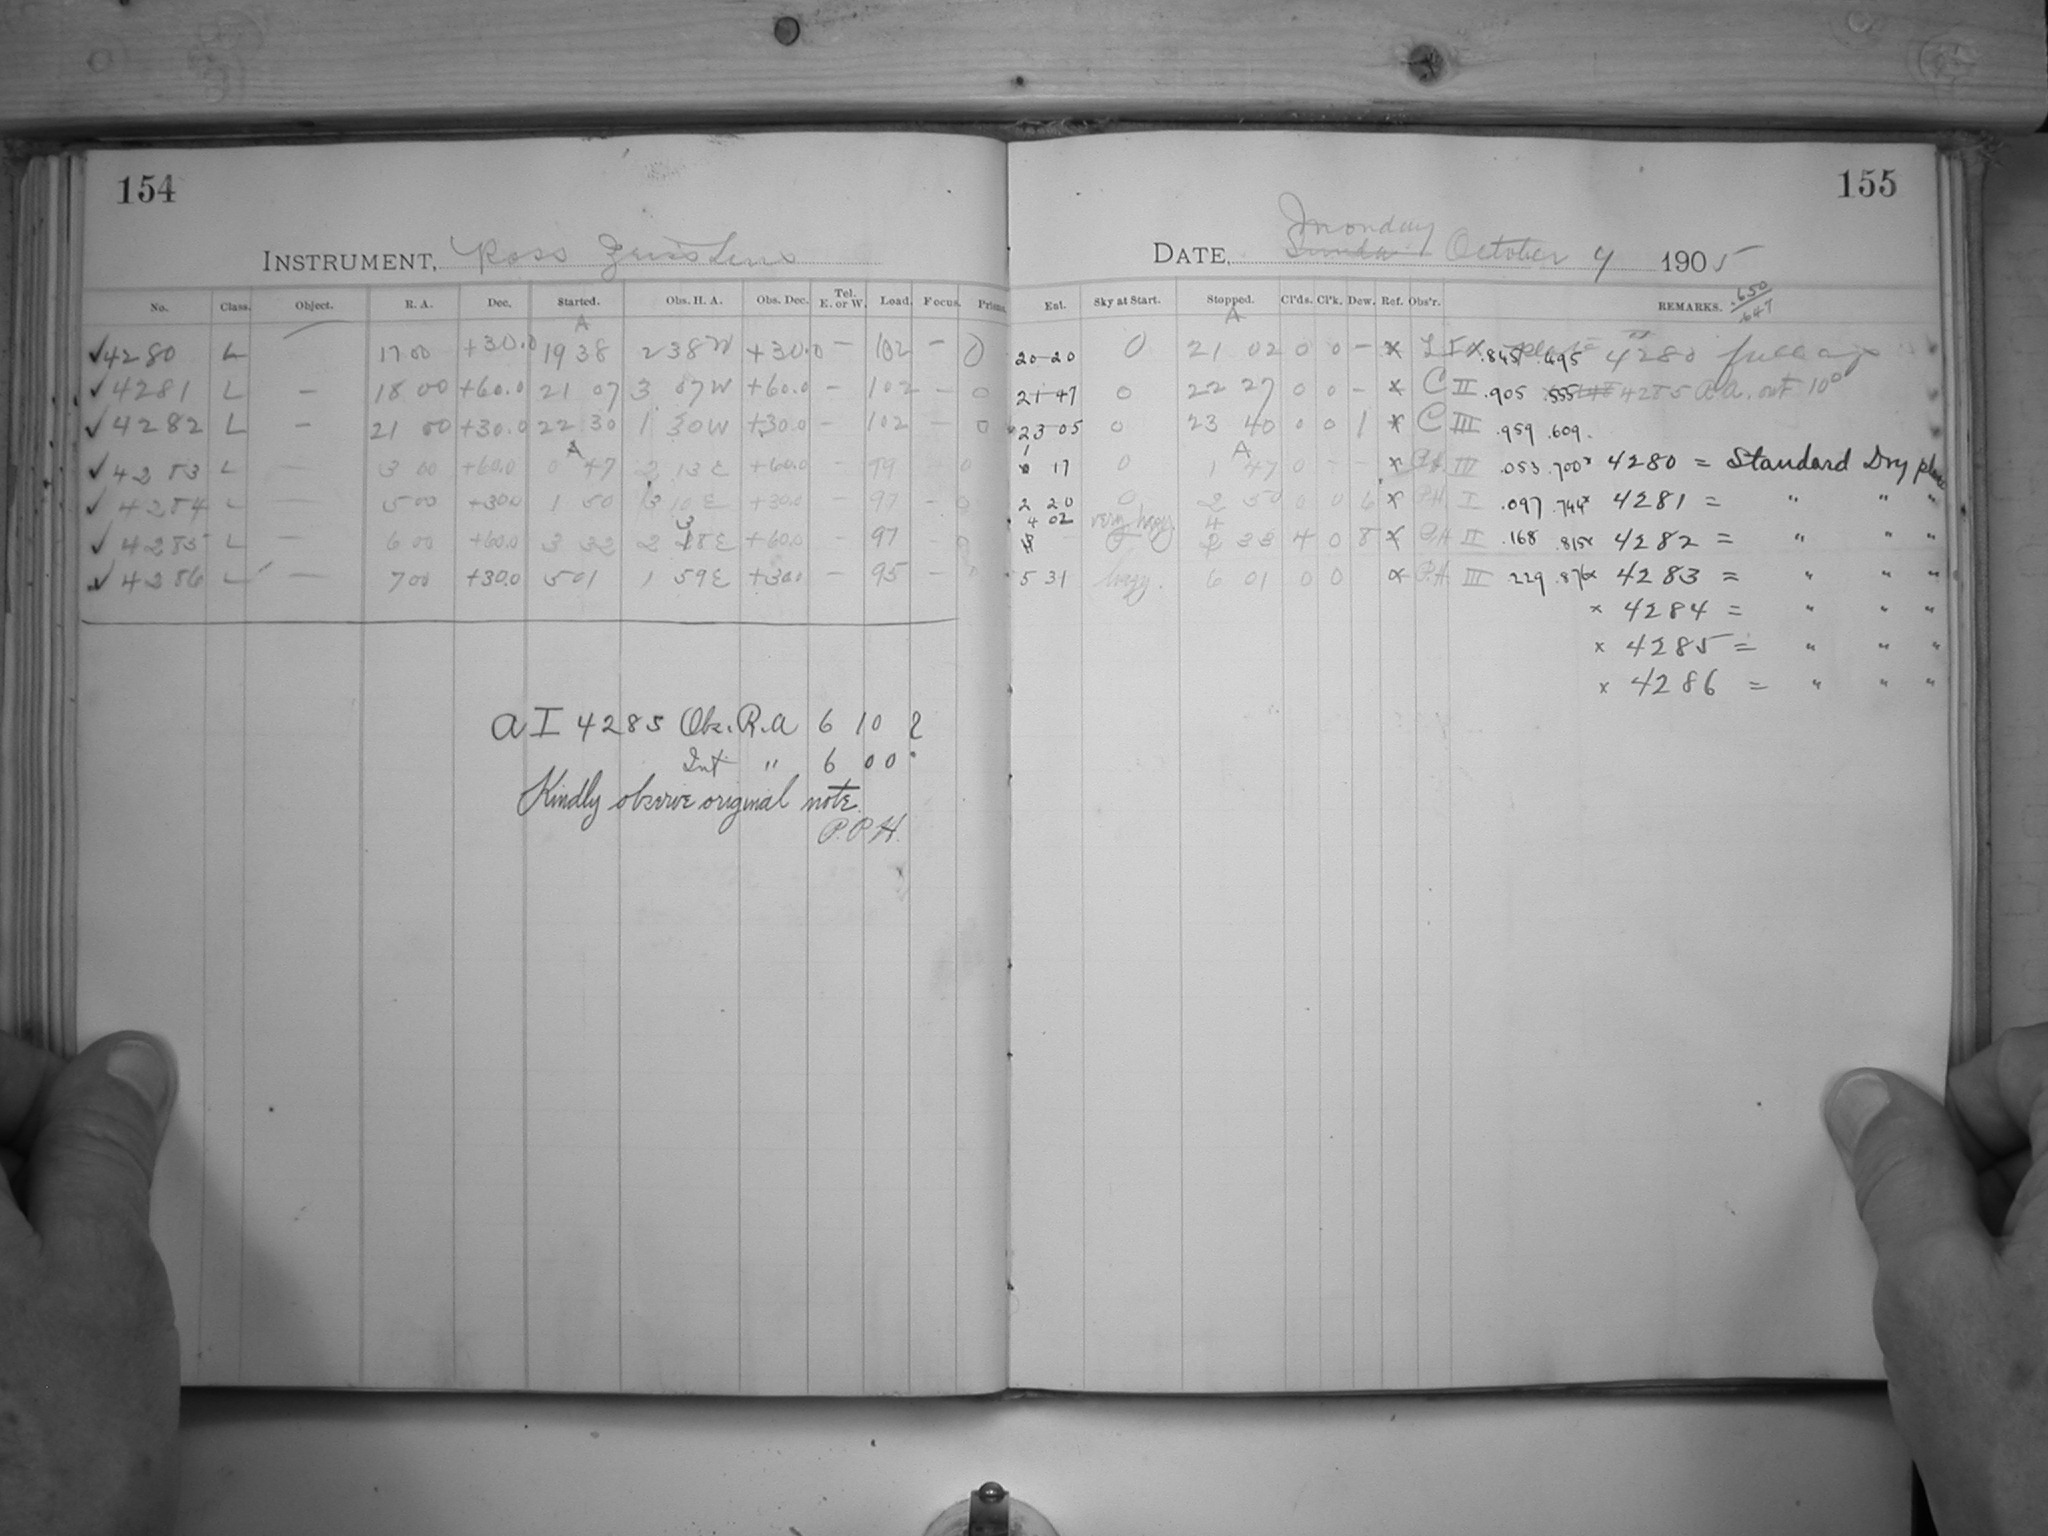 154
INSTRUMENT, Ross Zeiss Lens
No. Class. Object. R. A. Dec. Started. Obs. H. A. Obs. Dec. Tel. E. or W. Load. Focus. Prisms.
A
✓4280 L — 17 00 +30.0 19 38 2 38 W +30.0 — 102 — 0
✓4281 L — 18 00 +60.0 21 07 3 07 W +60.0 — 102 — 0
✓4282 L — 21 00 +30.0 22 30 1 30 W +30.0 — 102 — 0
A
✓4283 L — 3 00 +60.0 0 47 2 13 E +60.0 — 99 — 0
✓4284 L — 5 00 +30.0 1 50 3 10 E +30.0 — 97 — 0
✓4285 L — 6 00 +60.0 3 32 2 38 E +60.0 — 97 — 0
✓4286 L — 7 00 +30.0 5 01 1 59 E +30.0 — 95 — 0
a I 4285 Obs. R.A 6 10 ?
Int " 6 00
Kindly observe original note.
P.P.H.
155
Monday
DATE, Sunda October 9 1905
Eal. Sky at Start. Stopped. Cl'ds. Cl'k. Dew. Ref. Obs'r. REMARKS. .650
.647
A
20 20 0 21 02 0 0 — x L I x .845 .495 4280 full
21 47 0 22 27 0 0 — x C II .905 .555 4285 R.A. out 10
23 05 0 23 40 0 0 1 x C III .959 .609
A
1 17 0 1 47 0 — — x P.H. III .053 .700 x 4280 = Standard Dry plate
2 20 0 2 50 0 0 6 x P.H. I .097 .744 x 4281 = " " "
4 02 very hazy. 4 33 4 0 8 x P.H. II .168 .815 x 4282 = " " "
5 31 hazy. 6 01 0 0 x P.H. III .229 .876 x 4283 = " " "
x 4284 = " " "
x 4285 = " " "
x 4286 = " " "